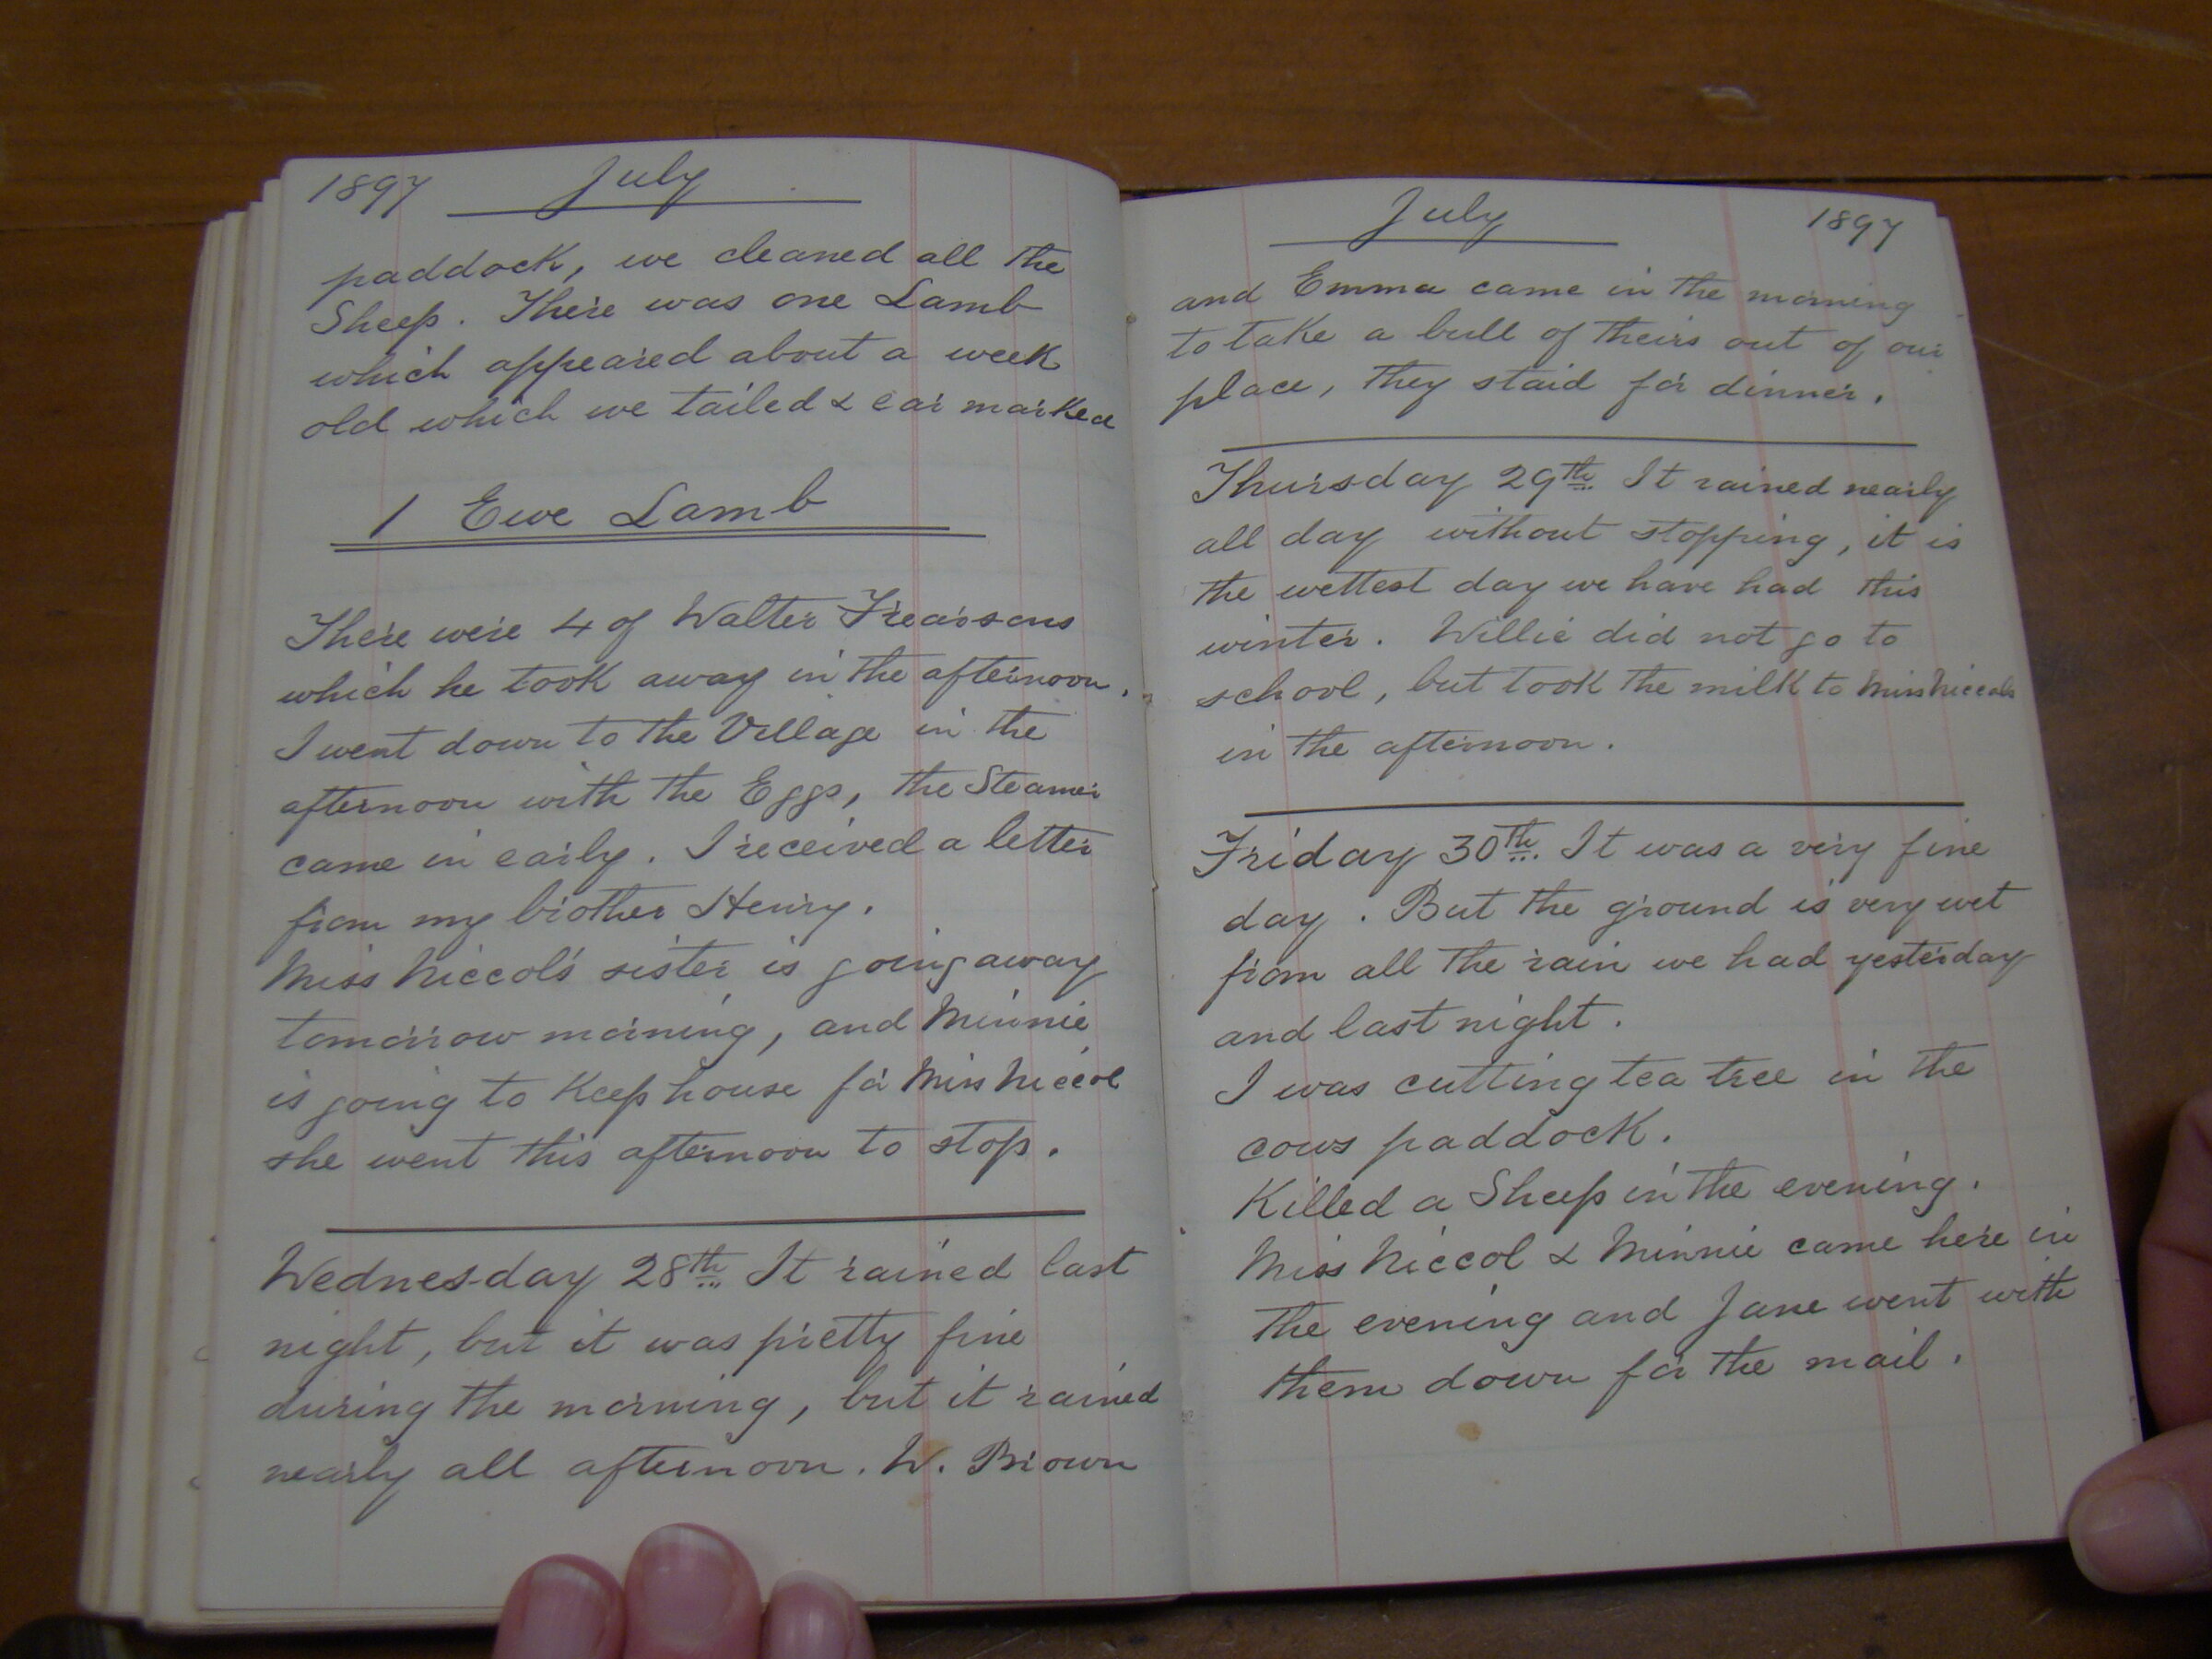 1897 July
paddock, we cleaned all the
Sheep. There was one Lamb
which appeared about a week
old which we tailed & ear marked
1 Ewe Lamb
There were 4 of Walter Frearsons
which he took away in the afternoon.
I went down to the Village in the
afternoon with the Eggs, the Steamer
came in early. I received a letter
from my brother Henry.
Miss Niccol's sister is going away
tomorrow morning, and Minnie
is going to Keep house for Miss Niccol
she went this afternoon to stop.
Wednesday 28th It rained last
night, but it was pretty fine
during the morning, but it rained
nearly all afternoon. W. Brown
July 1897
and Emma came in the morning
to take a bull of theirs out of our
place, they staid for dinner.
Thursday 29th It rained nearly
all day without stopping, it is
the wettest day we have had this
winter. Willie did not go to
school, but took the milk to Miss Niccols
in the afternoon.
Friday 30th. It was a very fine
day. But the ground is very wet
from all the rain we had yesterday
and last night.
I was cutting tea tree in the
cows paddock.
Killed a Sheep in the evening.
Miss Niccol & Minnie came here in
the evening and Jane went with
them down for the mail.